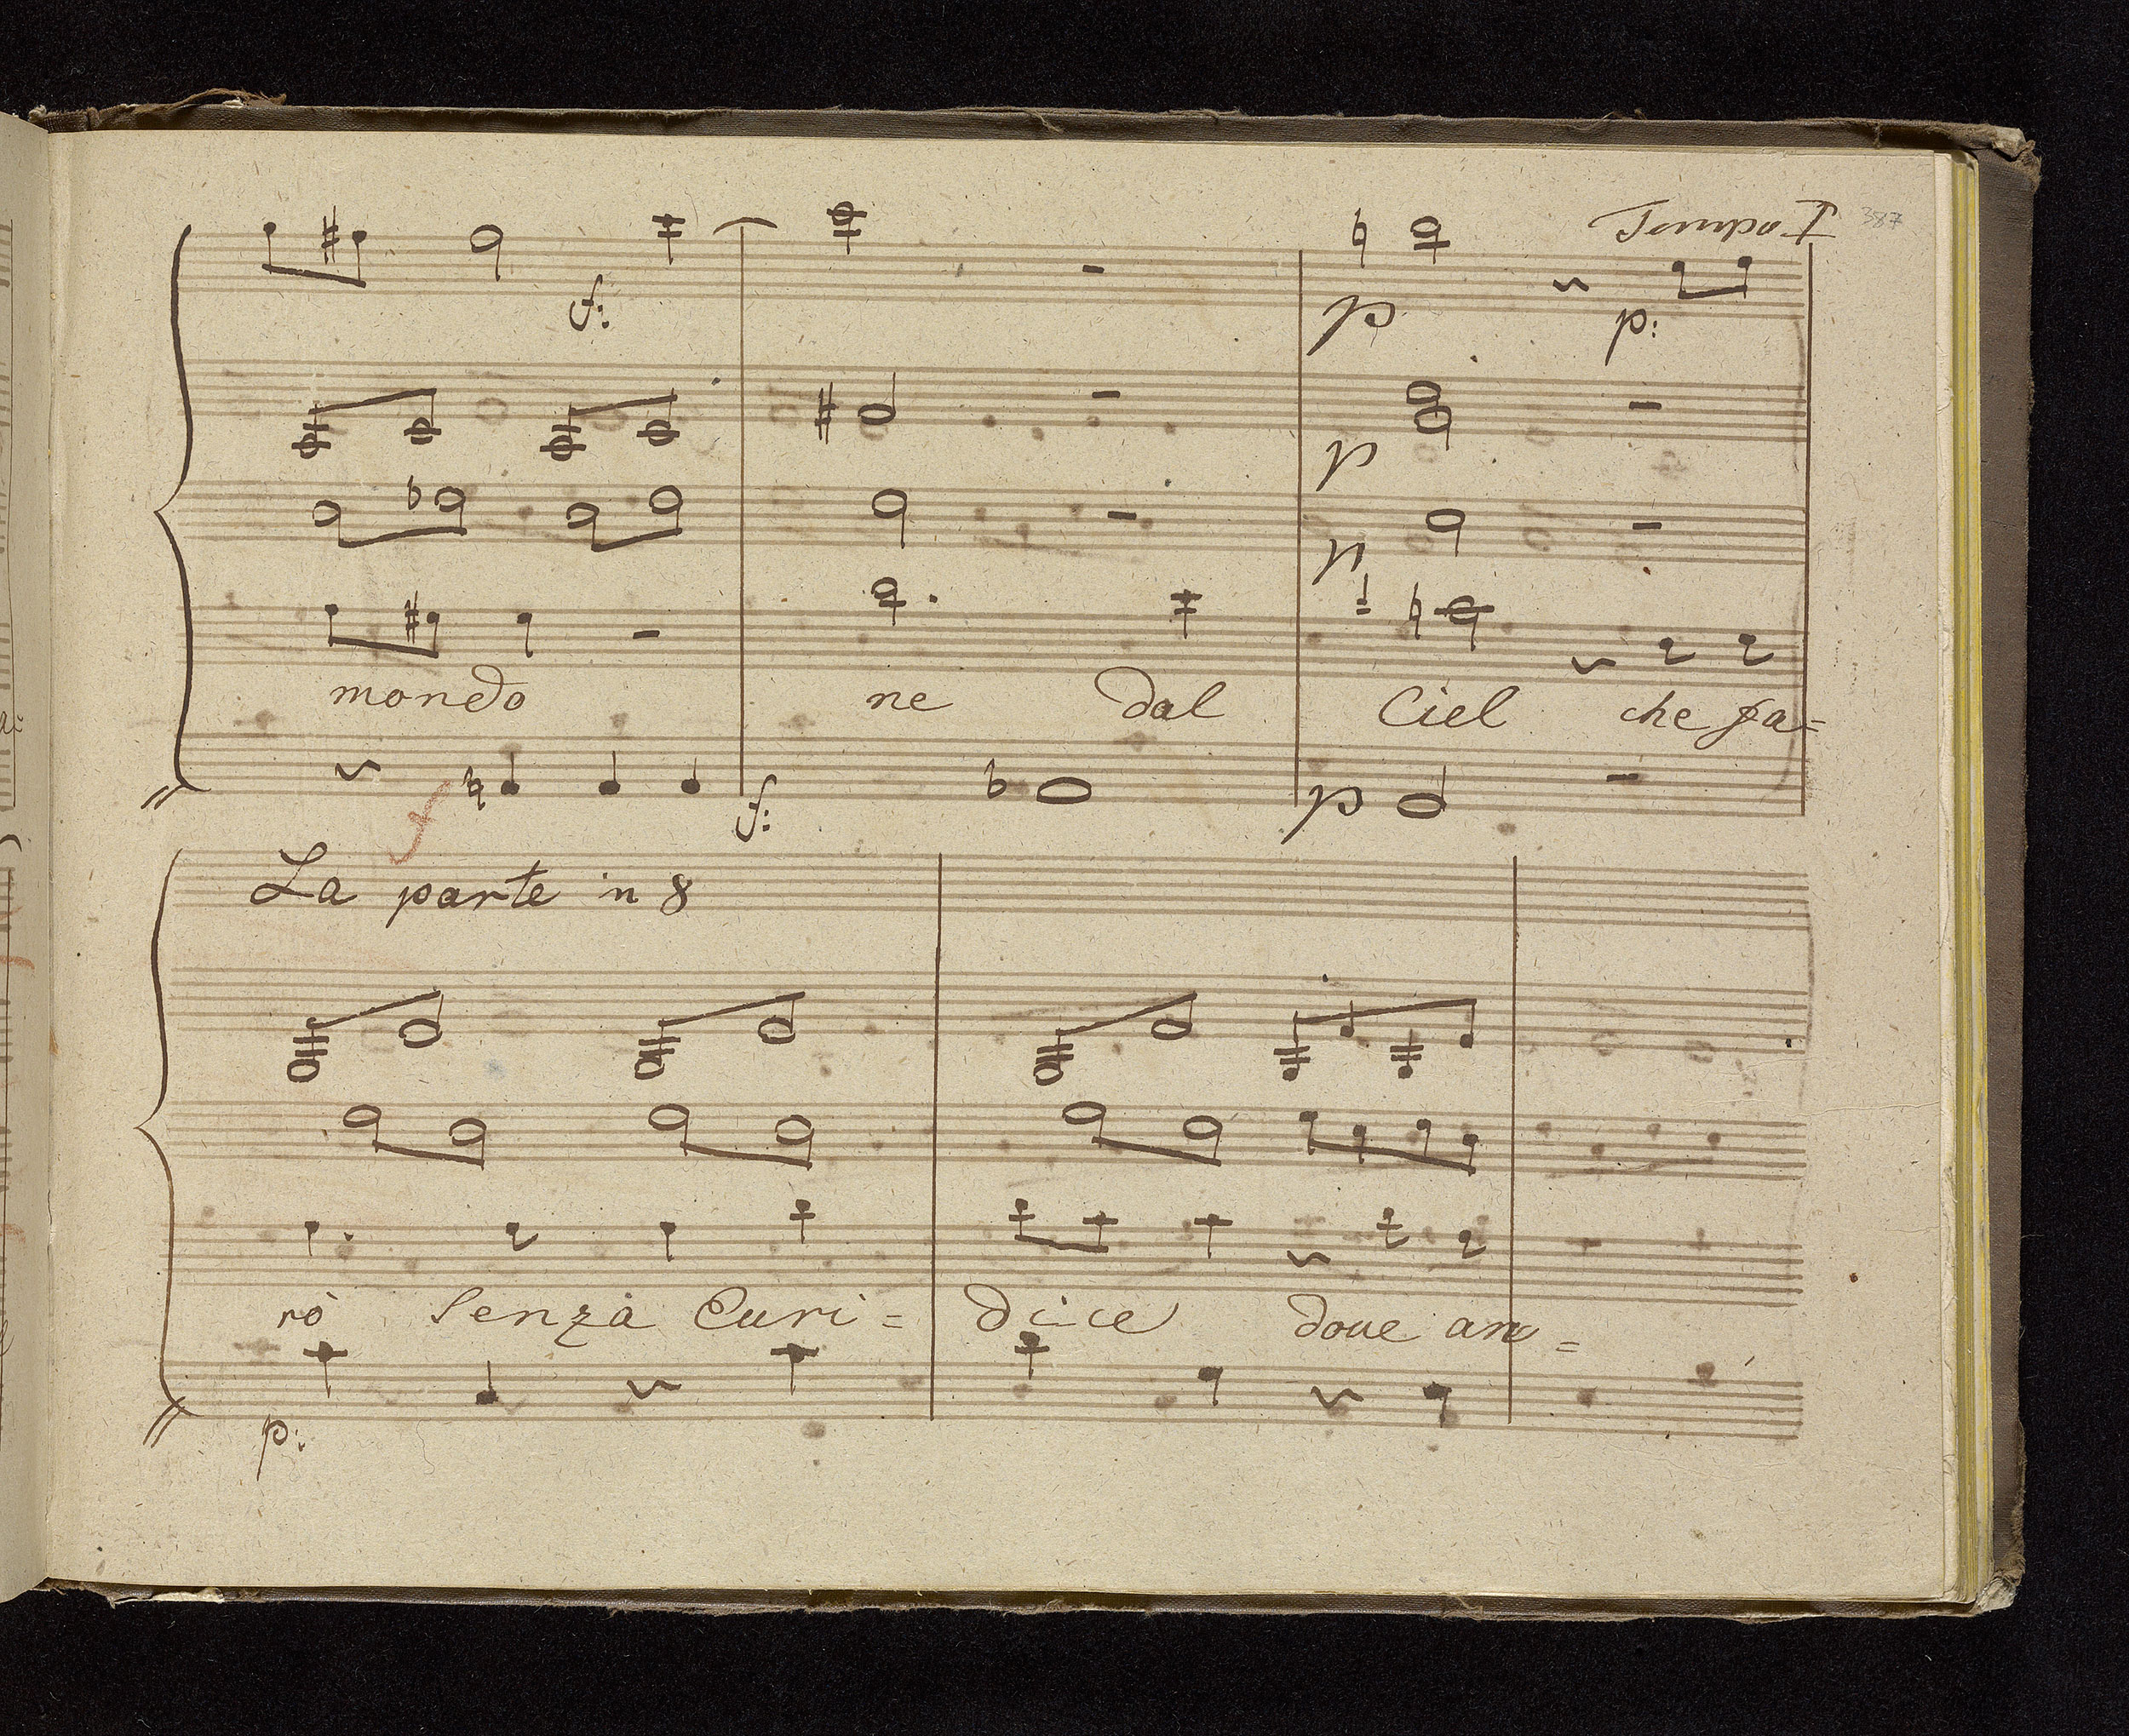 Tempo I 387
f: p p:
p
p
mondo ne dal Ciel che fa=
f f: p
La parte in 8
rò Senza Euri= dice doue an=
p: